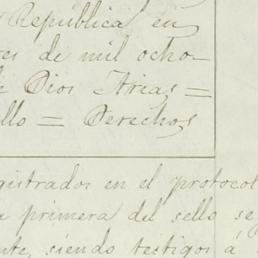 Republica en
res de mil ocho-
e Dios Arias =
llo = Derechos
gistrados en el protocol
a primera del sello se
nte, siendo testigos á